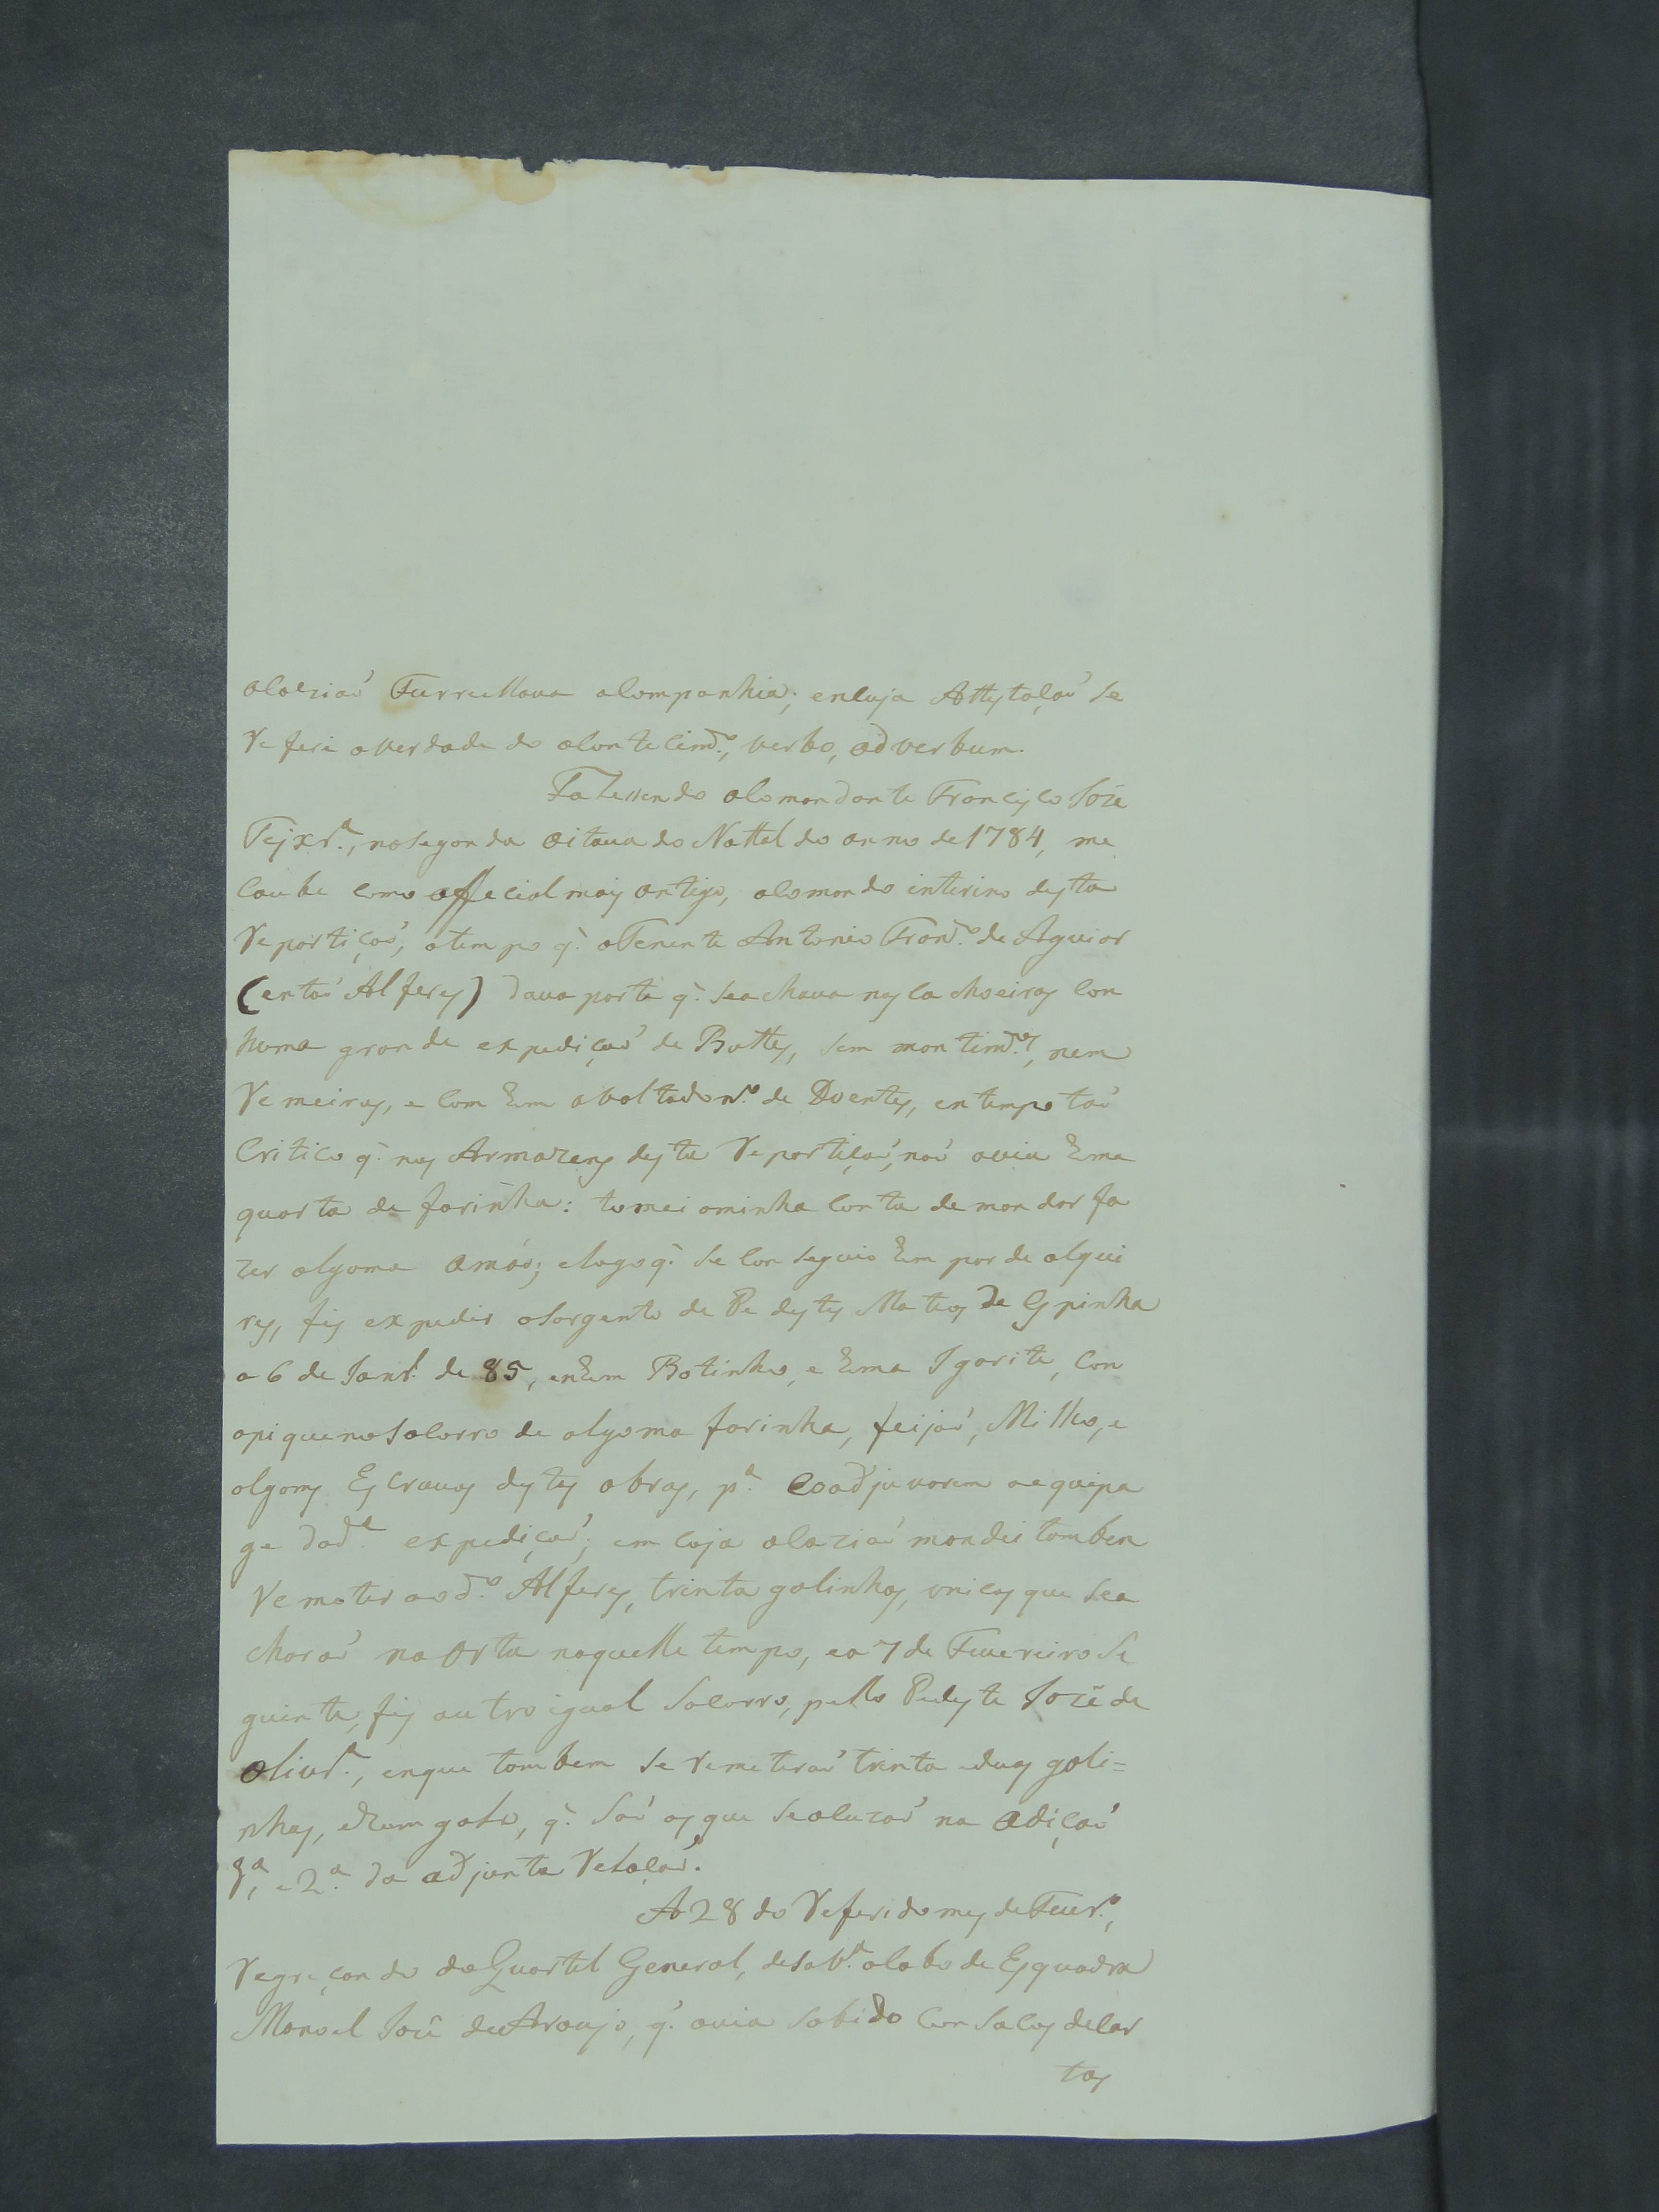 ocaziaõ Furriellava acompanhia; encuja Attestaçaõ se
refere averdade do acontecimd.º, verbo, ad verbum.
Falessendo acomandante Francisco Jozé
Teixr.ª, nasegonda oitava do Nattal do anno de 1784, me
coube como offecial mais antigo, ocomando interino desta
repartiçaõ, atempo q̃. oTenente Antonio Francd.º de Aguiar
(entaõ Alferes) dava parte q̃. seachava nas cachoeiras con
huma grande expediçaõ de Bottes, sem mantimd.os, nem
remeiros, e com hum avoltado n.º de Doentes, entempo taõ
critico q̃. nos Armazens desta repartiçaõ, naõ avia huma
quarta de farinha: tomei aminha conta de mandar fa
zer algoma amaõ; elogo q̃. se conseguio hum par de alquei
res, fis expedir osargento de Pedestes Mateos de Espinha
a 6 de Janr.º de 85, enhum Botinho, e huma Igarite, con
opiqueno socorro de algoma farinha, feijaõ, Milho, e
algons Escravos destas obras, p.ª coadjuvarem aequipa
ge dad.ª expediçaõ; em coja ocaziaõ mandei tambem
remeter aod.º Alferes, trinta galinhas, unicas que sea
charaõ na orta naquelle tempo, ea 7 de Fevereiro se
guinte, fis outro igual socorro, pello Pedeste Jozé de
olivr.ª, enque tambem se remeteraõ trinta eduas gali=
nhas, ehum galo, q̃. saõ as que seacuzaõ na adiçaõ
1.ª, e 2.ª da adjunta relaçaõ.
A 28 do referido mes de Fevr.º,
regreçando do Quartel General, desab.ª ocabo de Esquadra
Manoel Jozé de Araujo, q̃. avia sobido con sacos de car
tas